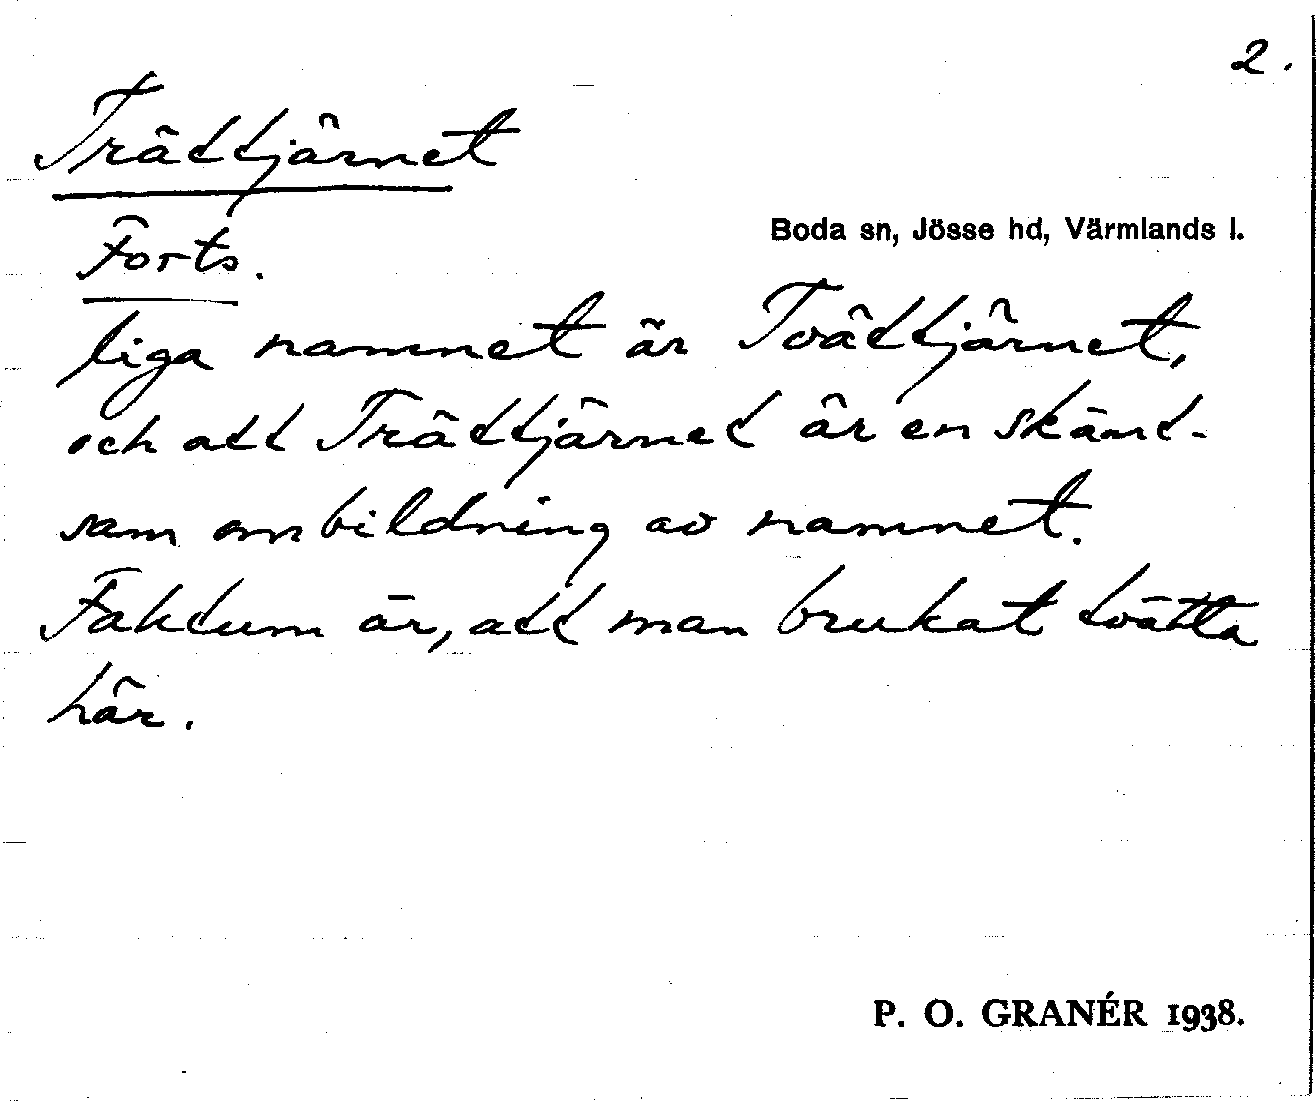 2.
Trättjärnet
Forts.
Boda sn, Jösse hd, Värmlands l.
liga namnet är Tvättjärnet,
och att Trättjärnet är en skämt-
sam ombildning av namnet.
Faktum är, att man brukat tvätta
här.
P. O. GRANÉR 1938.